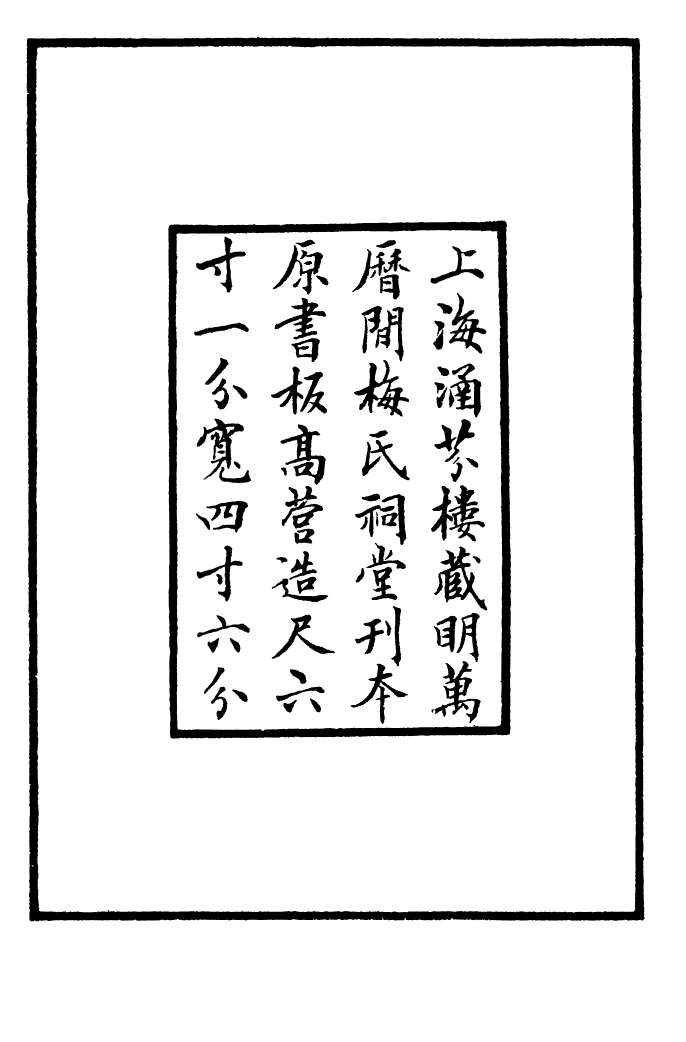 上海涵芬樓藏明萬
曆間梅氏祠堂刊本
原書板高營造尺六
寸一分寬四寸六分